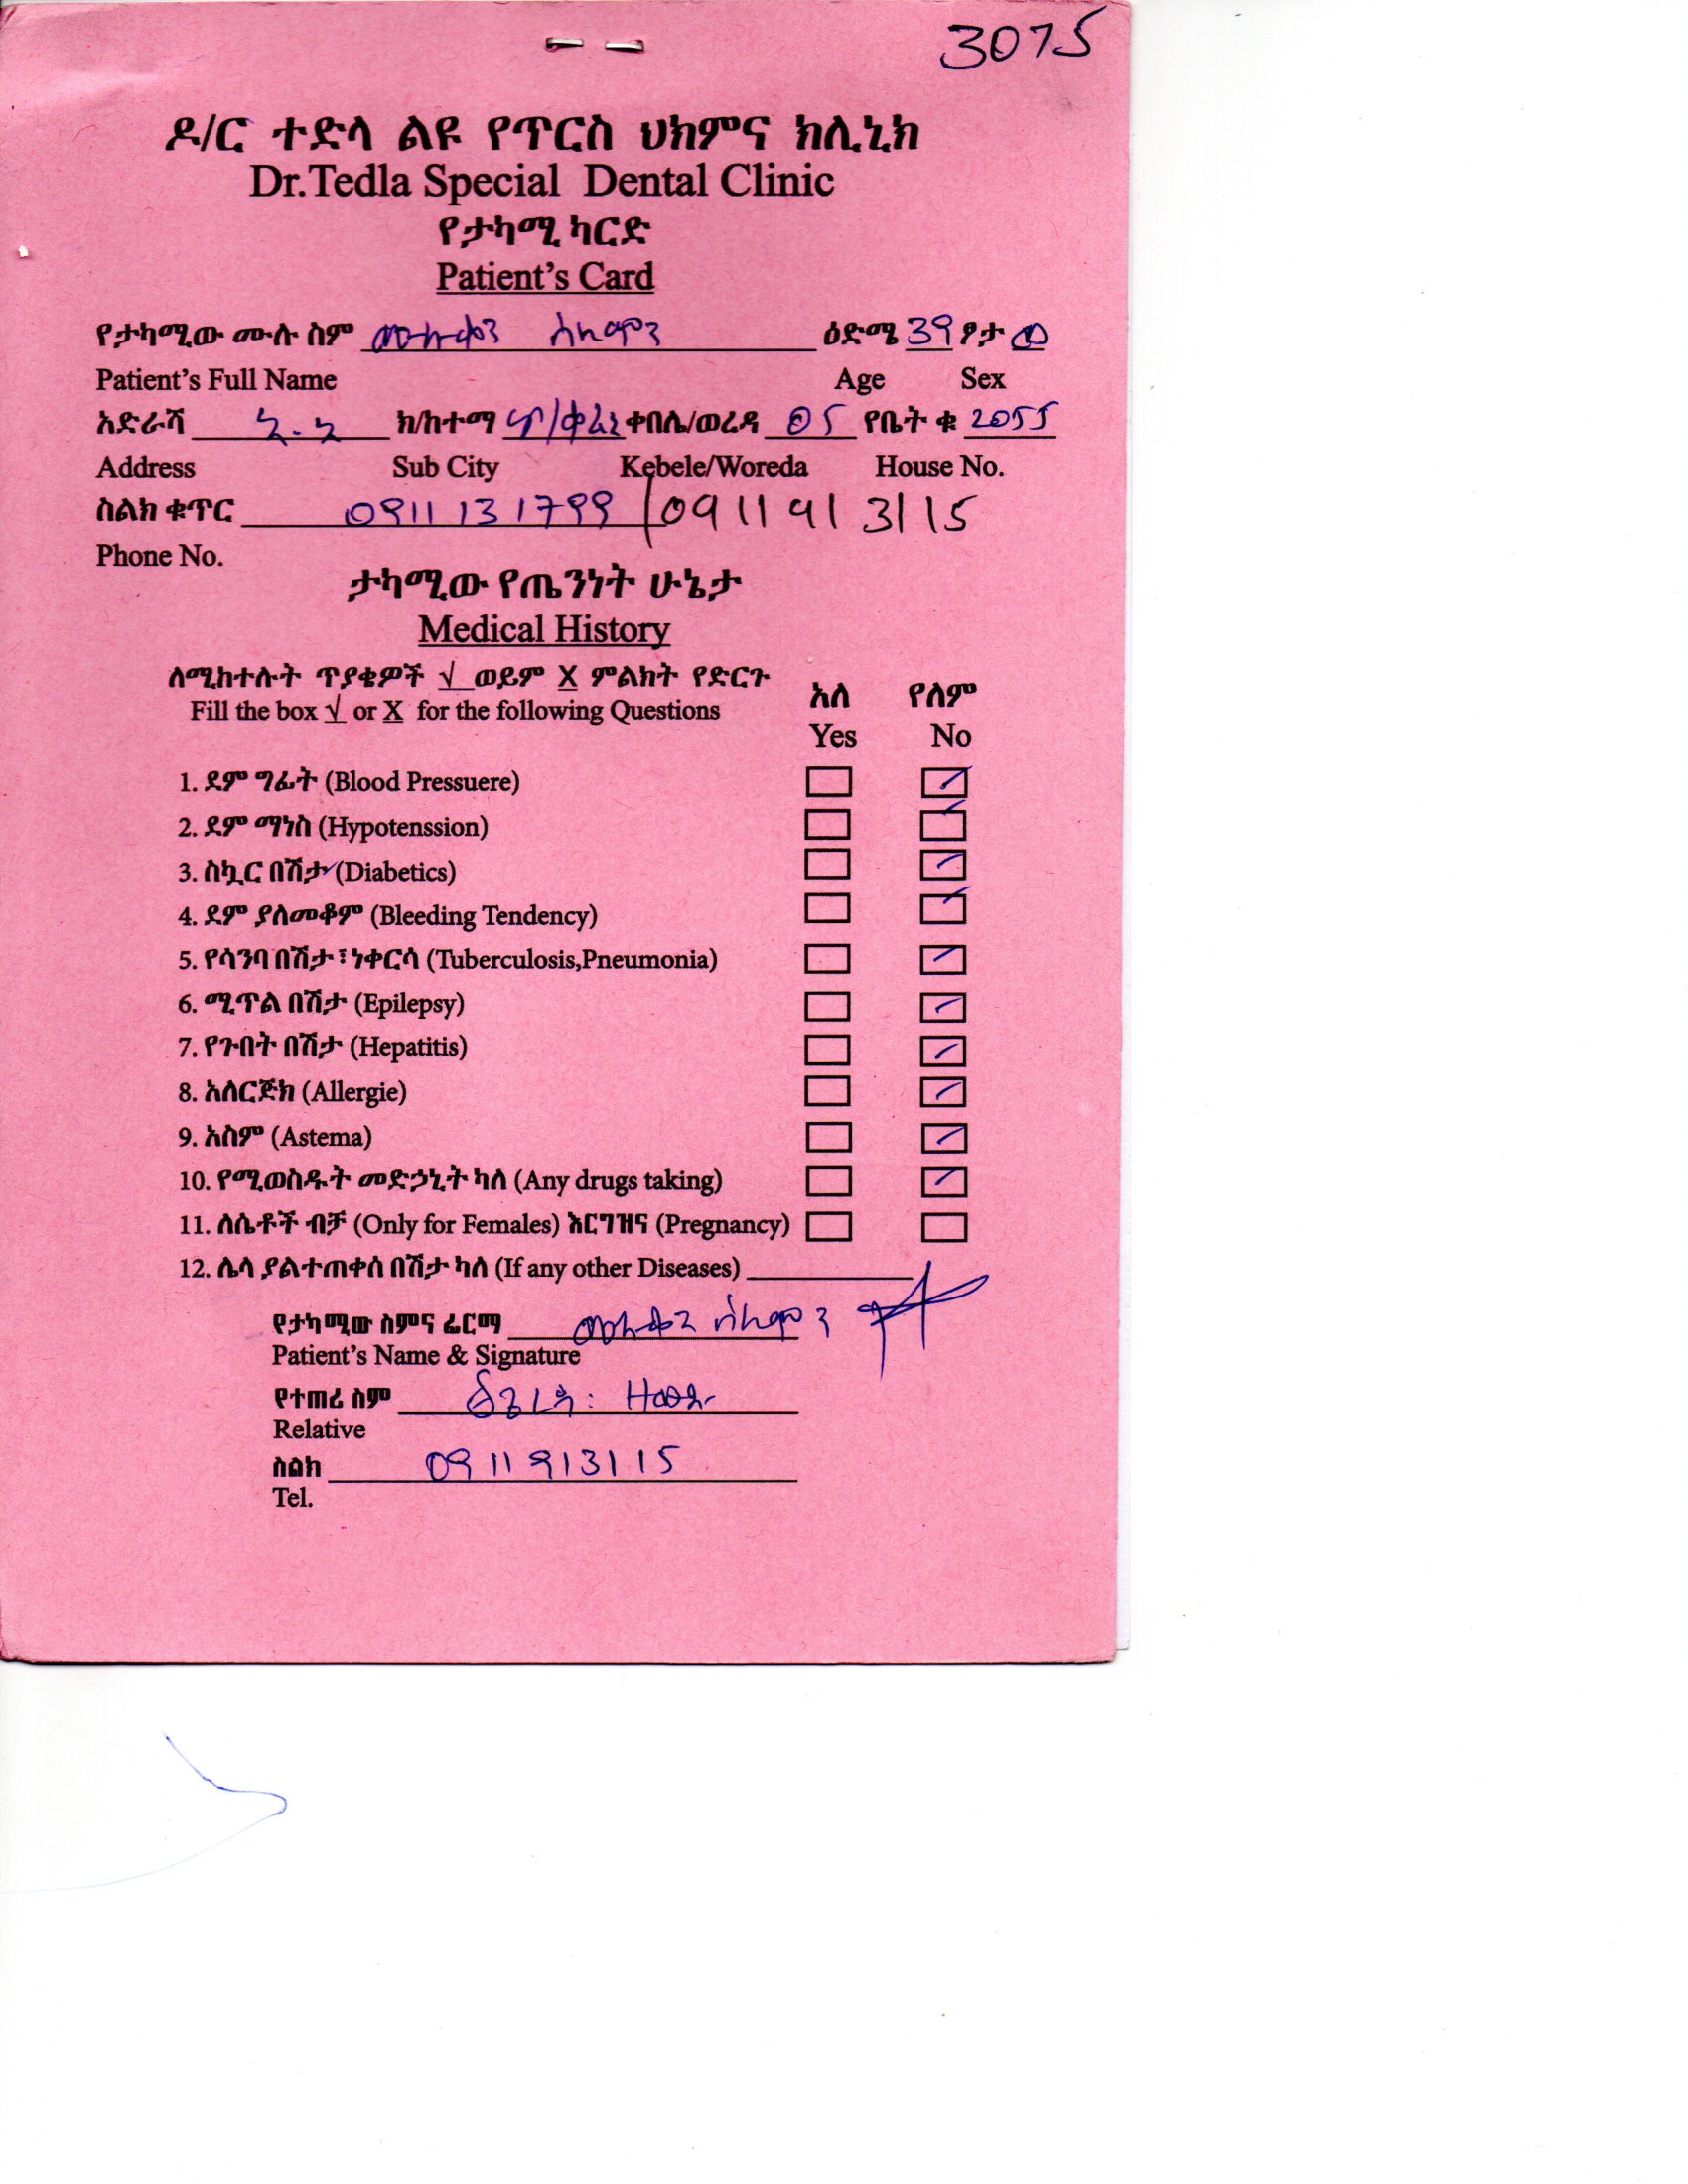 3075
ዶ/ር ተድላ ልዩ የጥርስ ህክምና ክሊኒክ
Dr.Tedla Special Dental Clinic
የታካሚ ካርድ
Patient's Card
የታካሚው ሙሉ ስም ሰለሞን ዕድሜ 39 ፆታ ወ
Patient's Full Name Age Sex
አድራሻ አ.አ ክ/ከተማ ቀበሌ/ወረዳ 05 የቤት ቁ 2055
Address Sub City Kebele/Woreda House No.
ስልክ ቁጥር 0911 13 1799 / 09 11 91 31 15
Phone No.
ታካሚው የጤንነት ሁኔታ
Medical History
ለሚከተሉት ጥያቄዎች √ ወይም X ምልክት የድርጉ
Fill the box √ or X for the following Questions
አለ የለም
Yes No
1. ደም ግፊት (Blood Pressuere)
2. ደም ማነስ (Hypotenssion)
3. ስኳር በሽታ (Diabetics)
4. ደም ያለመቆም (Bleeding Tendency)
5. የሳንባ በሽታ፣ነቀርሳ (Tuberculosis,Pneumonia)
6. ሚጥል በሽታ (Epilepsy)
7. የጉበት በሽታ (Hepatitis)
8. አለርጅክ (Allergie)
9. አስም (Astema)
10. የሚወስዱት መድኃኒት ካለ (Any drugs taking)
11. ለሴቶች ብቻ (Only for Females) እርግዝና (Pregnancy)
12. ሌላ ያልተጠቀሰ በሽታ ካለ (If any other Diseases)
የታካሚው ስምና ፊርማ ሰለሞን
Patient's Name & Signature
የተጠሪ ስም
Relative
ስልክ 0911 913115
Tel.